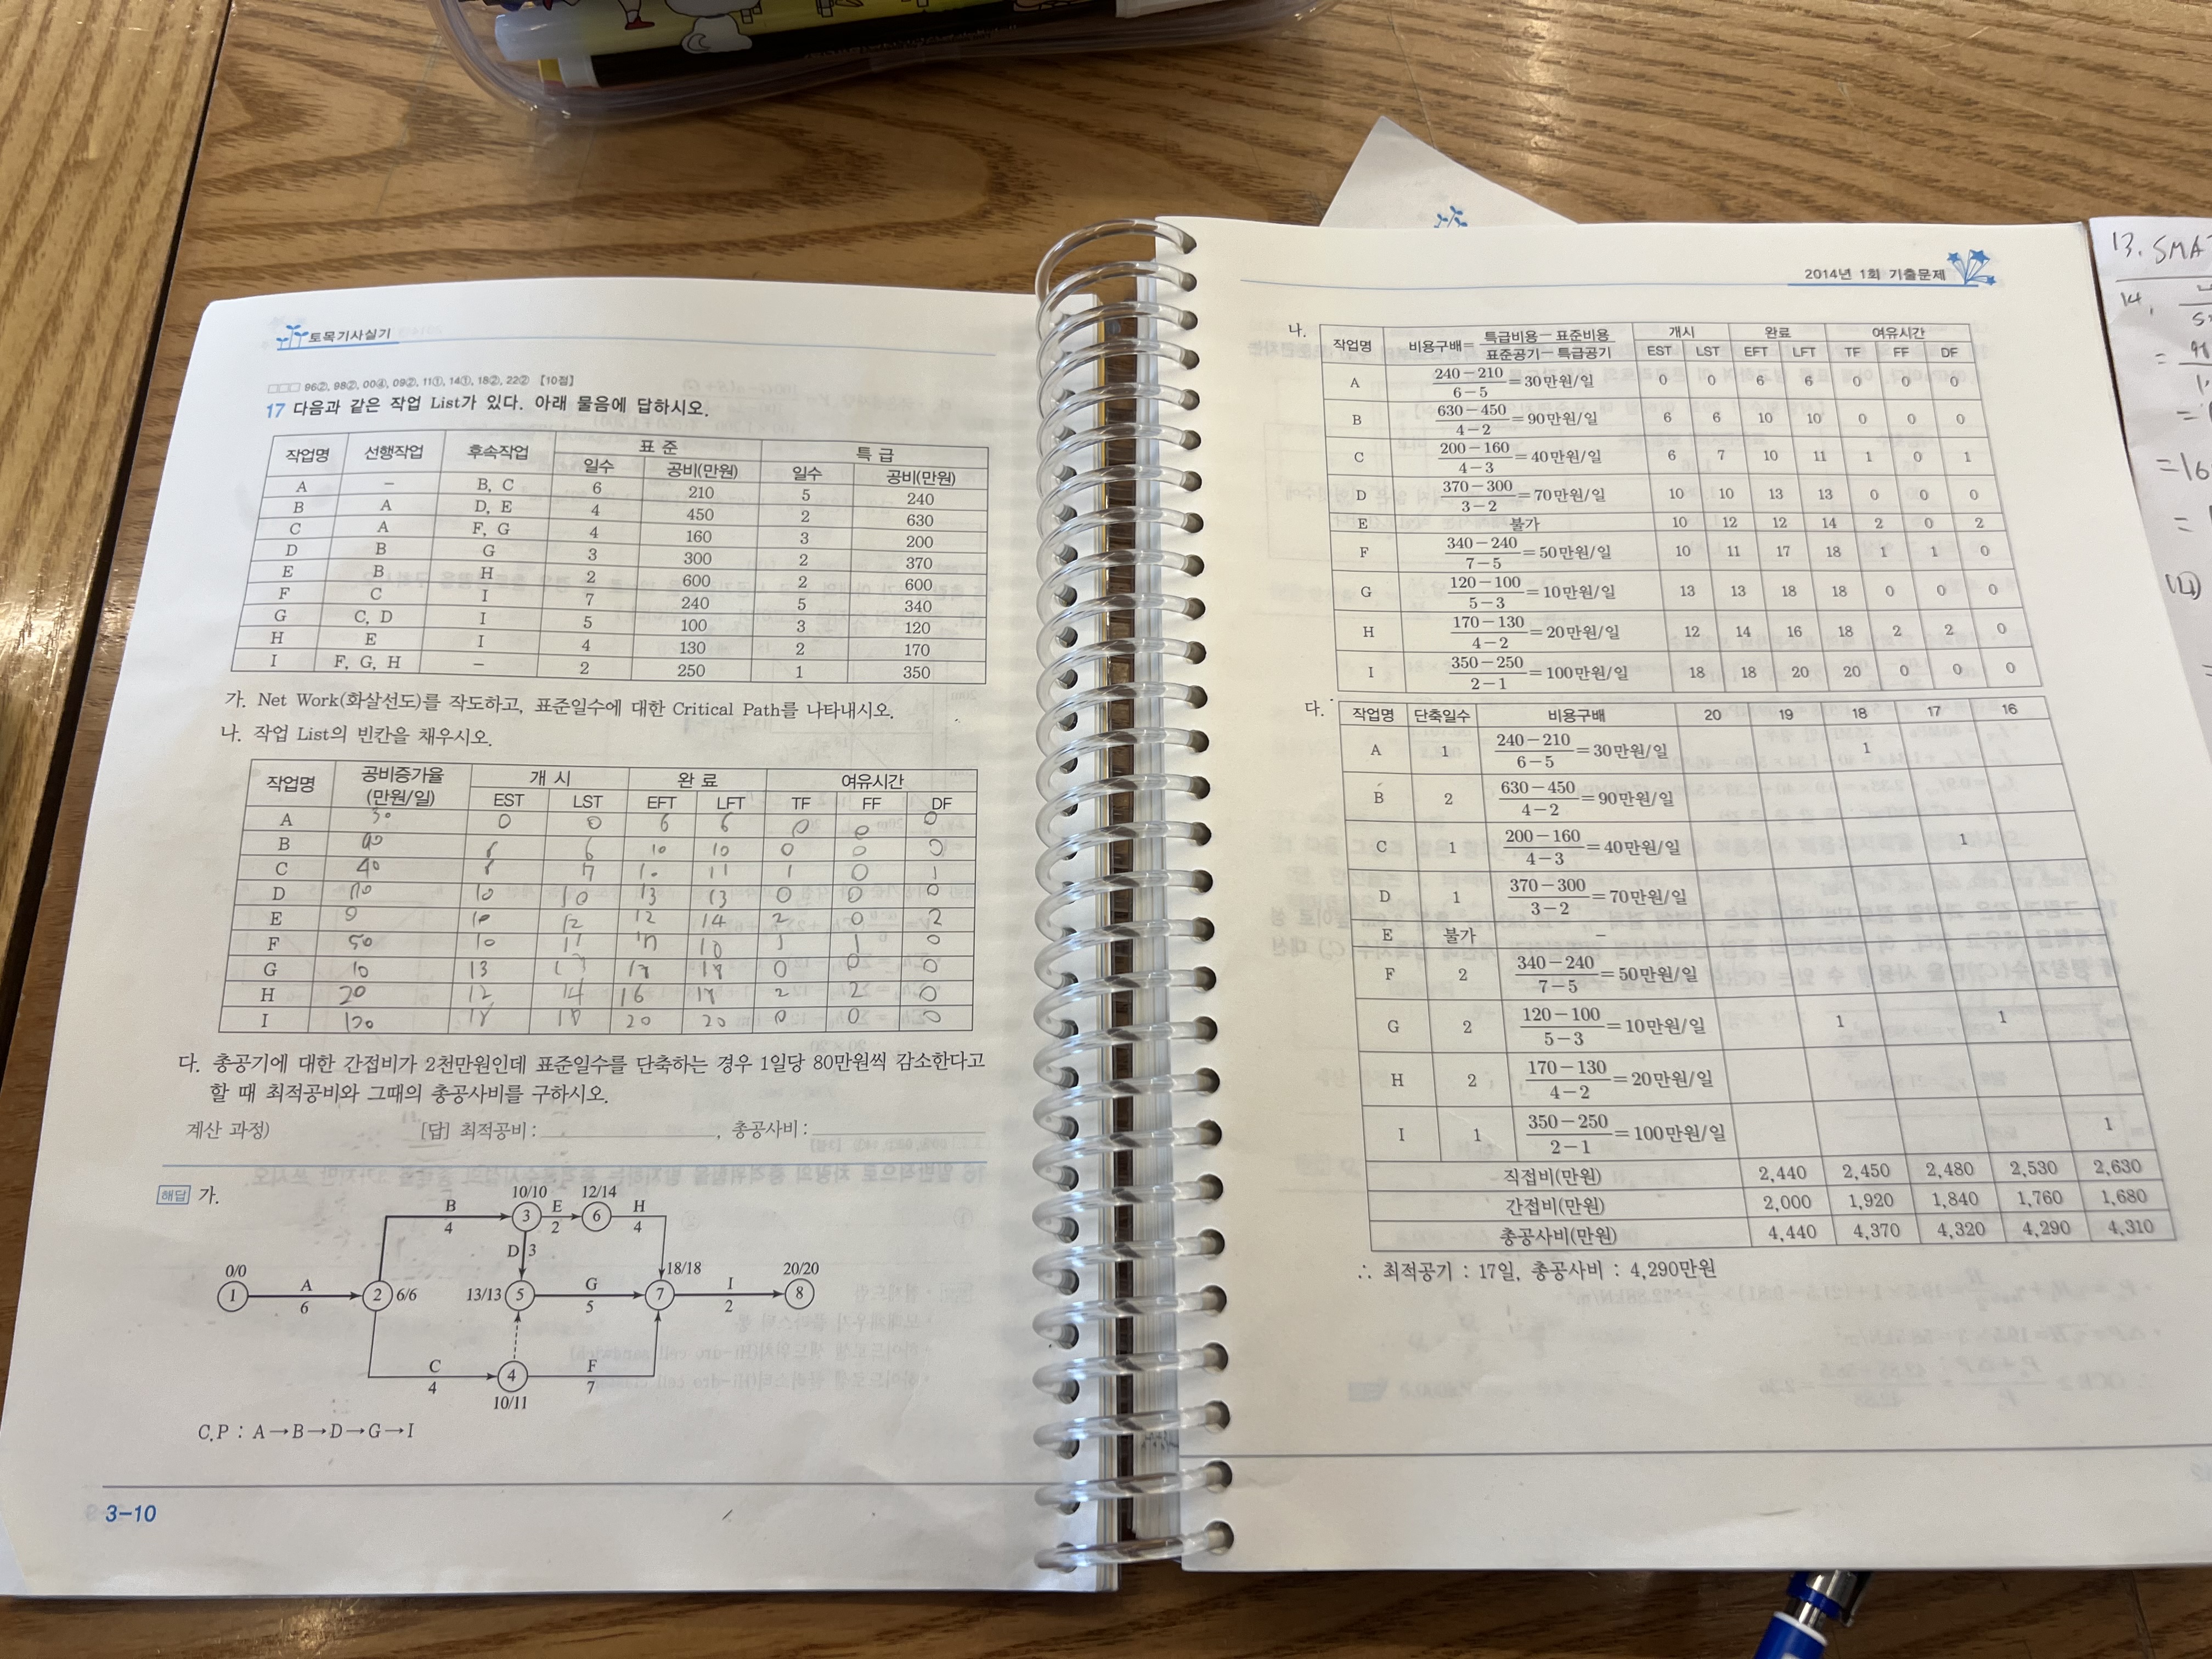 토목기사실기
96②, 98②, 00④, 09②, 11①, 14①, 18②, 22② 【10점】
17 다음과 같은 작업 List가 있다. 아래 물음에 답하시오.
작업명 선행작업 후속작업 표 준 특 급
일수 공비(만원) 일수 공비(만원)
A − B, C 6 210 5 240
B A D, E 4 450 2 630
C A F, G 4 160 3 200
D B G 3 300 2 370
E B H 2 600 2 600
F C I 7 240 5 340
G C, D I 5 100 3 120
H E I 4 130 2 170
I F, G, H − 2 250 1 350
가. Net Work(화살선도)를 작도하고, 표준일수에 대한 Critical Path를 나타내시오.
나. 작업 List의 빈칸을 채우시오.
작업명 공비증가율 (만원/일) 개 시 완 료 여유시간
EST LST EFT LFT TF FF DF
A 30 0 0 6 6 0 0 0
B 90 6 6 10 10 0 0 0
C 40 7 10 11 1 0 1
D 70 10 10 13 13 0 0 0
E 0 10 12 12 14 2 0 2
F 50 10 11 17 18 1 1 0
G 10 13 13 18 18 0 0 0
H 20 12 14 16 18 2 2 0
I 100 18 18 20 20 0 0 0
다. 총공기에 대한 간접비가 2천만원인데 표준일수를 단축하는 경우 1일당 80만원씩 감소한다고
할 때 최적공비와 그때의 총공사비를 구하시오.
계산 과정) [답] 최적공비 : , 총공사비 :
해답 가.
10/10 12/14
B 3 E 6 H
4 2 4
D 3
0/0 18/18 20/20
1 A 2 6/6 13/13 5 G 7 I 8
6 5 2
C 4 F
4 7
10/11
C.P : A→B→D→G→I
3-10
2014년 1회 기출문제
나.
작업명 비용구배= 특급비용−표준비용 / 표준공기−특급공기 개시 완료 여유시간
EST LST EFT LFT TF FF DF
A 240−210 / 6−5 =30만원/일 0 0 6 6 0 0 0
B 630−450 / 4−2 =90만원/일 6 6 10 10 0 0 0
C 200−160 / 4−3 =40만원/일 6 7 10 11 1 0 1
D 370−300 / 3−2 =70만원/일 10 10 13 13 0 0 0
E 불가 10 12 12 14 2 0 2
F 340−240 / 7−5 =50만원/일 10 11 17 18 1 1 0
G 120−100 / 5−3 =10만원/일 13 13 18 18 0 0 0
H 170−130 / 4−2 =20만원/일 12 14 16 18 2 2 0
I 350−250 / 2−1 =100만원/일 18 18 20 20 0 0 0
다.
작업명 단축일수 비용구배 20 19 18 17 16
A 1 240−210 / 6−5 =30만원/일 1
B 2 630−450 / 4−2 =90만원/일
C 1 200−160 / 4−3 =40만원/일 1
D 1 370−300 / 3−2 =70만원/일
E 불가 −
F 2 340−240 / 7−5 =50만원/일
G 2 120−100 / 5−3 =10만원/일 1 1
H 2 170−130 / 4−2 =20만원/일
I 1 350−250 / 2−1 =100만원/일 1
직접비(만원) 2,440 2,450 2,480 2,530 2,630
간접비(만원) 2,000 1,920 1,840 1,760 1,680
총공사비(만원) 4,440 4,370 4,320 4,290 4,310
∴ 최적공기 : 17일, 총공사비 : 4,290만원
13. SMA
14.
=
=
=16
=
(4)